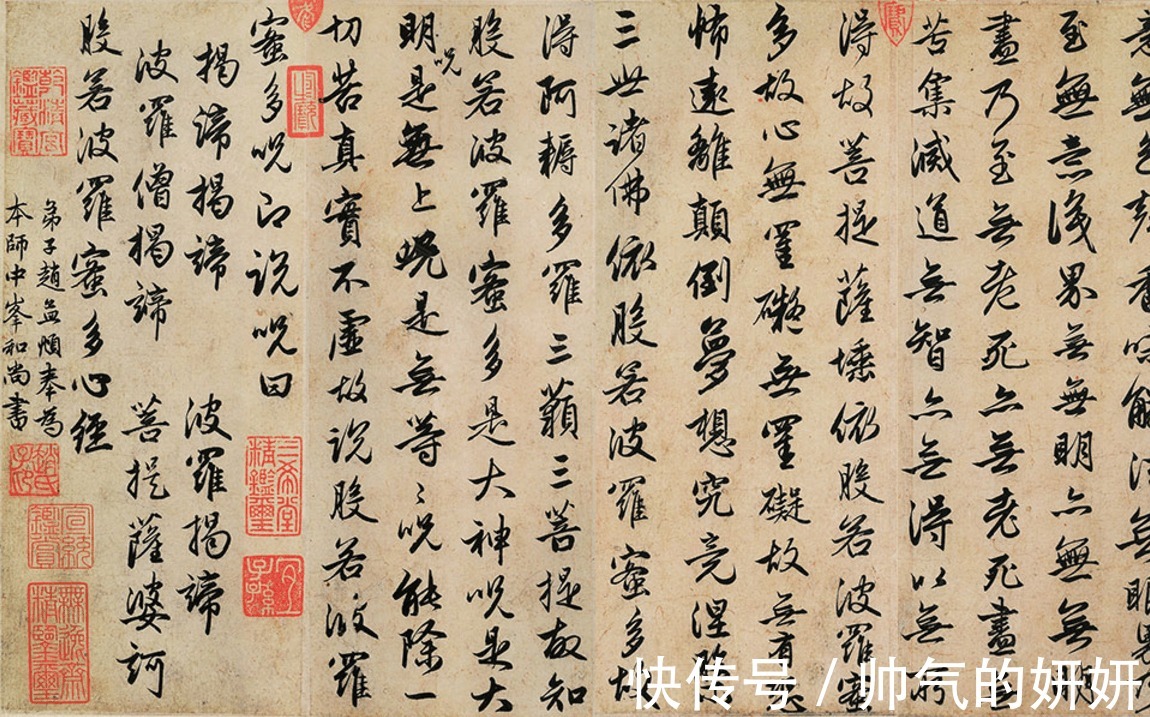 意無色聲香味觸法無眼界乃
至無意識界無無明亦無無明
盡乃至無老死亦無老死盡無
苦集滅道無智亦無得以無所
得故菩提薩埵依般若波羅蜜
多故心無罣礙無罣礙故無有恐
怖遠離顛倒夢想究竟涅槃
三世諸佛依般若波羅蜜多故
得阿耨多羅三藐三菩提故知
般若波羅蜜多是大神咒是大
明咒是無上咒是無等〻咒能除一
切苦真實不虛故說般若波羅
蜜多咒即說咒曰
揭諦揭諦 波羅揭諦
波羅僧揭諦 菩提薩婆訶
般若波羅蜜多心經
弟子趙孟頫奉為
本師中峯和尚書
三希堂精鑑璽
宜子孫
無逸齋精鑒璽
快传号 / 帅气的妍妍